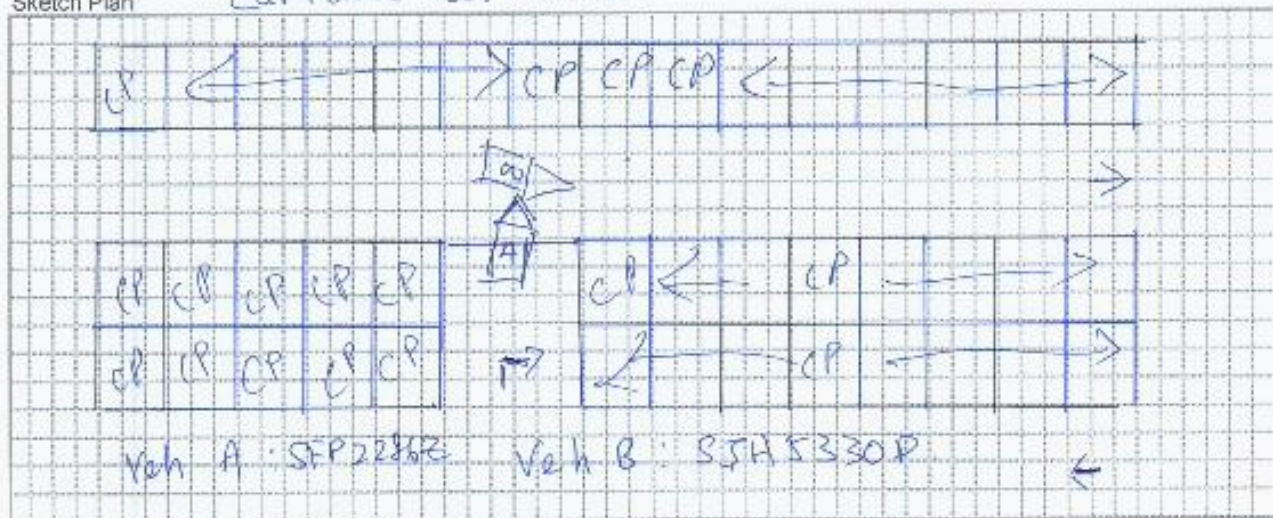 Sketch Plan
CP CP CP CP
B
A
CP CP CP CP CP CP CP
CP CP CP CP CP CP
Veh A : Veh B : SJH5330P